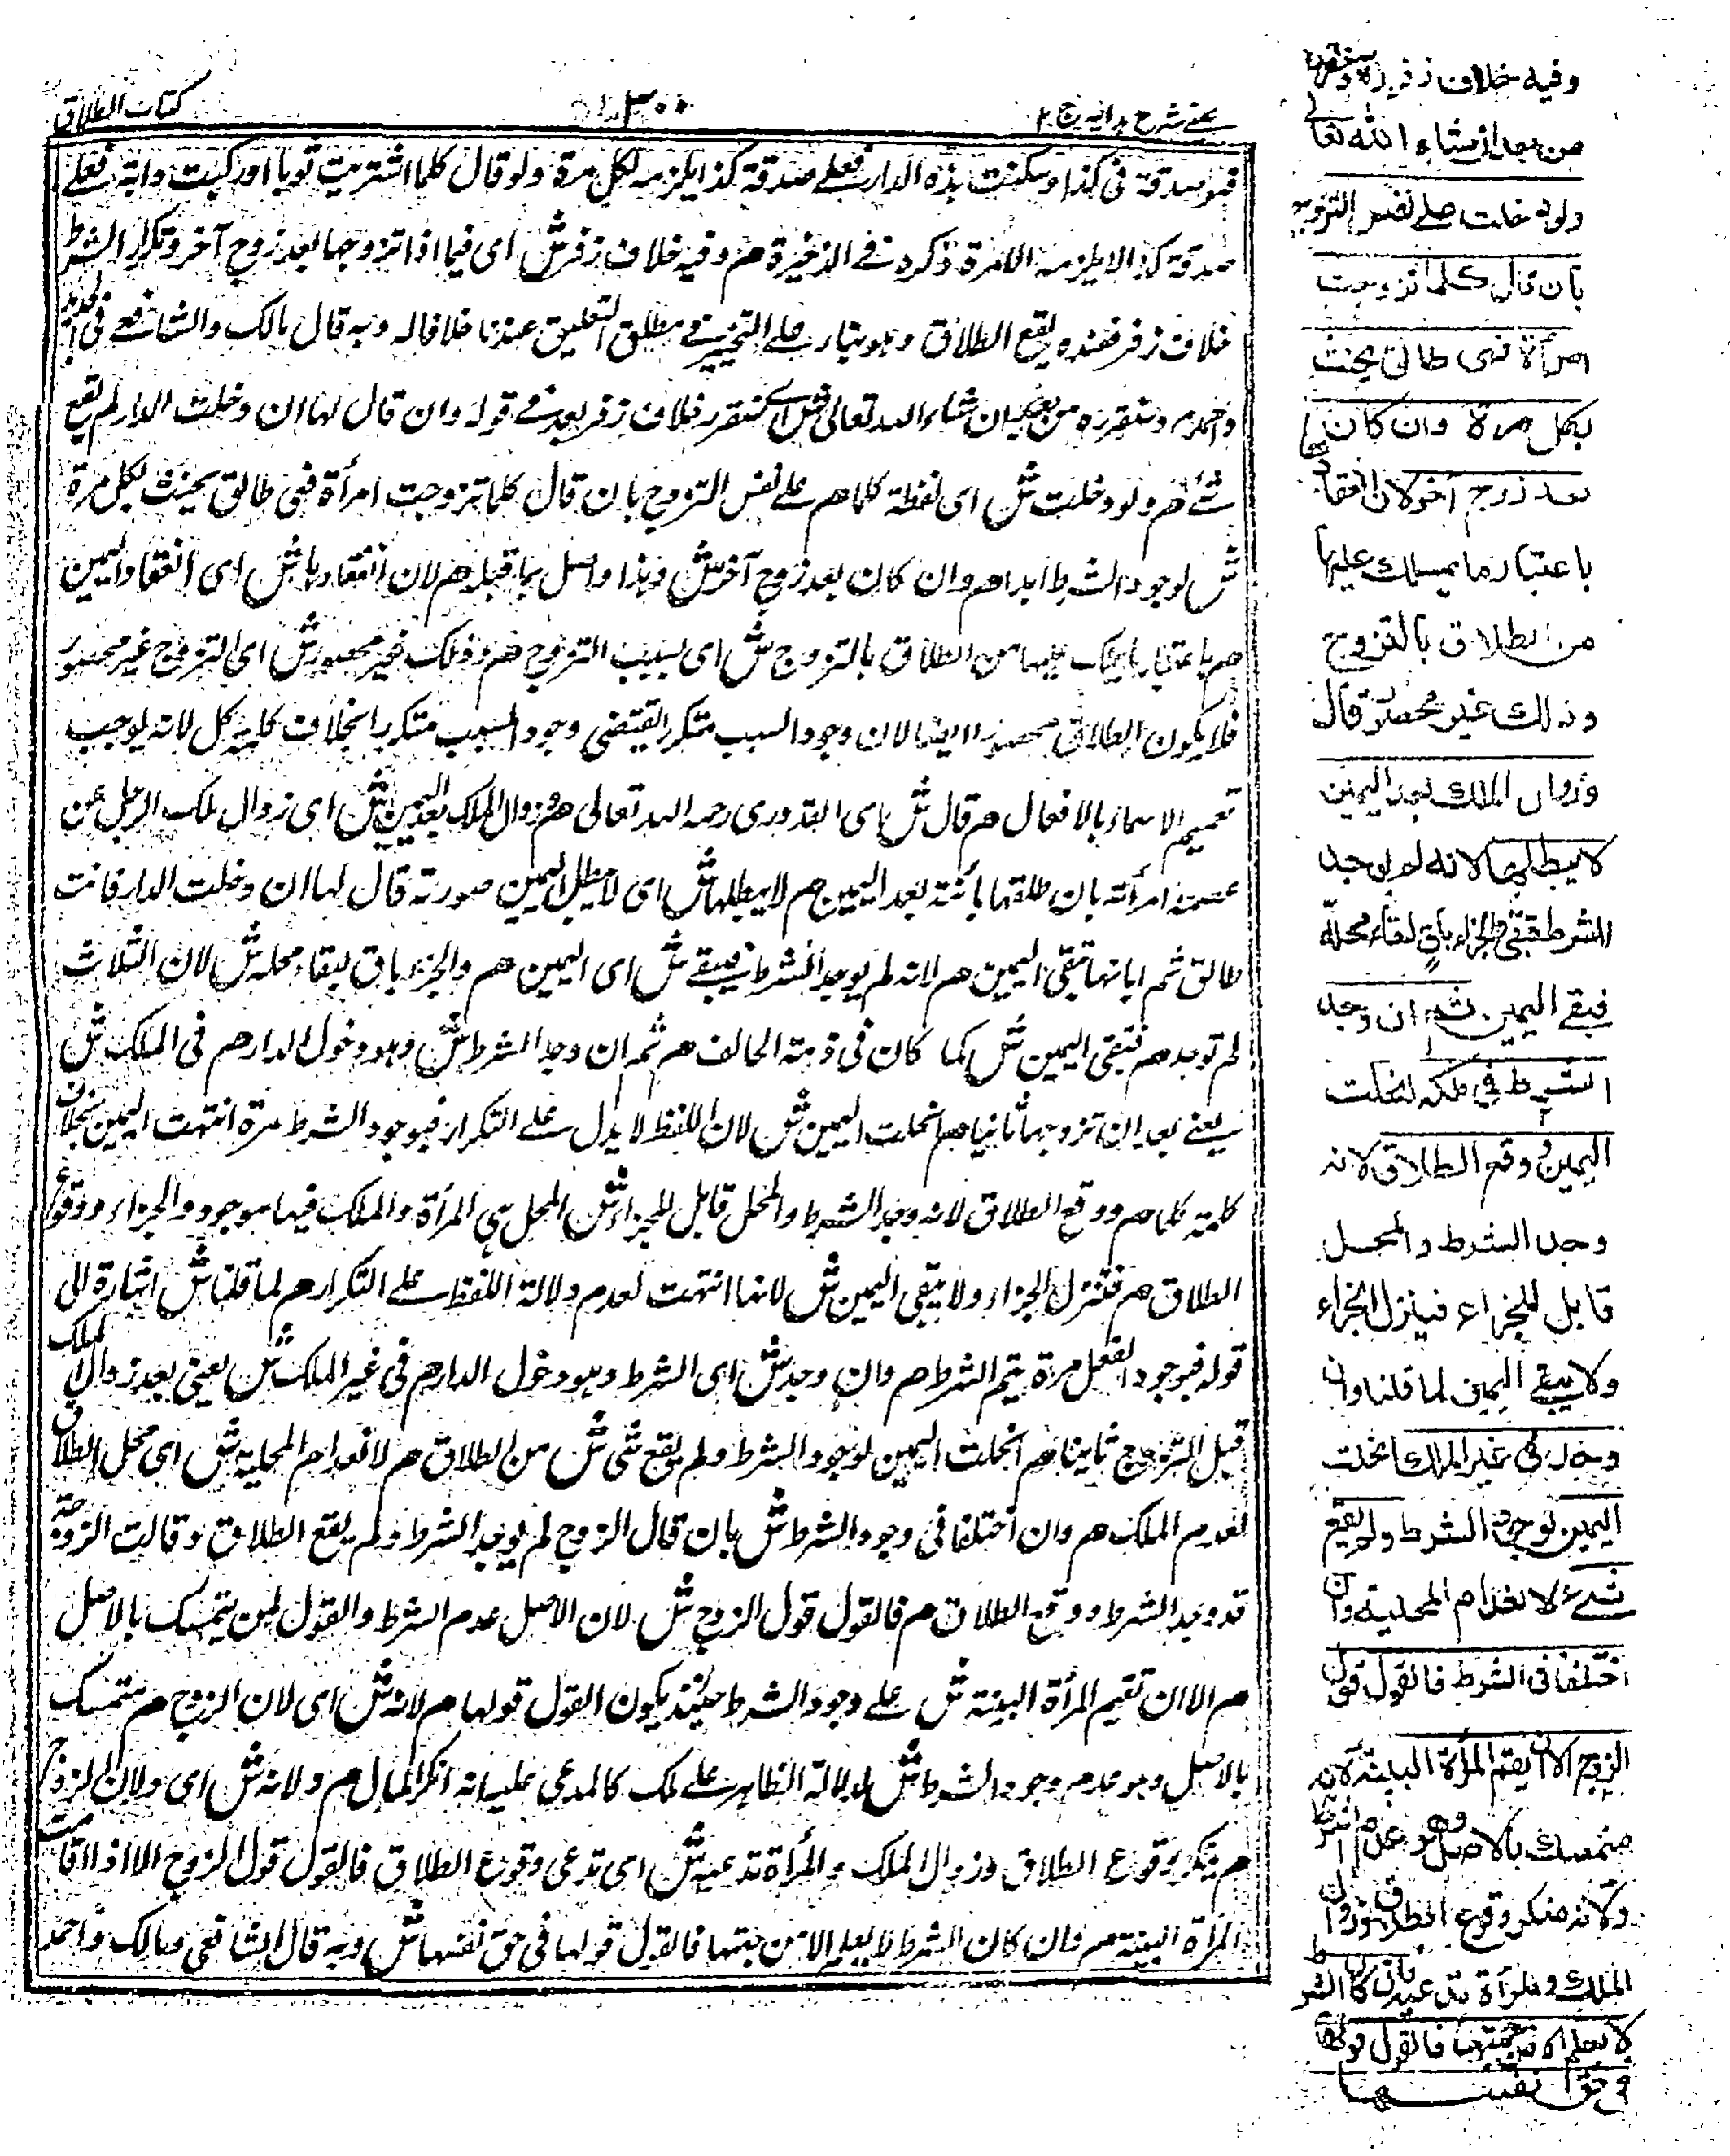 عینی شرح ہدایہ ج ۲
۳۰۰
کتاب الطلاق
فهو صدقة فى كذا وسكنت هذه الدار فعلى صدقة كذا يلزمه لكل مرة ولو قال كلما اشتريت ثوبا او ركبت دابة فعلى
صدقة كذا لا يلزمه الا مرة ذكره فى الذخيرة هم وفيه خلاف زفر ش اى فيما اذا تزوجها بعد زوج آخر وتكرار الشرط
خلاف زفر فعنده يقع الطلاق وهو بناء على التنجيز فى مطلق التعليق عندنا خلافا له وبه قال مالك والشافعى فى الجديد
واحمد هم وسنقرره من بعد ان شاء الله تعالى ش اى سنقرر خلاف زفر بعد فى قوله وان قال لها ان دخلت الدار لم يقع
شئ هم ولو دخلت ش اى لفظة كلما هم على نفس التزوج بان قال كلما تزوجت امرأة فهى طالق يحنث بكل مرة
ش لوجود الشرط ابدا هم وان كان بعد زوج آخر ش وهذا واصل بما قبله هم لان انعقادها ش اى انعقاد اليمين
هم باعتبار ما يملك عليها من الطلاق بالتزوج ش اى بسبب التزوج هم وذلك غير محصور ش اى التزوج غير محصور
فلا يكون الطلاق محصورا ايضا لان وجود السبب متكررا يقتضى وجود المسبب متكررا بخلاف كلمة كل لانه يوجب
تعميم الاسماء بالافعال هم قال ش اى القدورى رحمه الله تعالى هم وزوال الملك بعد اليمين ش اى زوال ملك الرجل عن
عصمة امرأته بان طلقها بائنة بعد اليمين هم لا يبطلها ش اى لا يبطل اليمين صورته قال لها ان دخلت الدار فانت
طالق ثم ابانها تبقى اليمين هم لانه لم يوجد الشرط فبقى ش اى اليمين هم والجزاء باق لبقاء محله ش لان الثلاث
لم توجد هم فتبقى اليمين ش كما كان فى ذمة الحالف هم ثم ان وجد الشرط ش وهو دخول الدار هم فى الملك ش
يعنى بعد ان تزوجها ثانيا هم انحلت اليمين ش لان اللفظ لا يدل على التكرار فبوجود الشرط مرة انتهت اليمين بخلاف
كلمة كلما هم ووقع الطلاق لانه وجد الشرط والمحل قابل للجزاء ش المحل هى المرأة والملك فيها موجود والجزاء وقوع
الطلاق هم فينزل الجزاء ولا يبقى اليمين ش لانها انتهت لعدم دلالة اللفظ على التكرار هم لما قلنا ش اشارة الى
قوله فبوجود الفعل مرة يتم الشرط هم وان وجد ش اى الشرط وهو دخول الدار هم فى غير الملك ش يعنى بعد زوال الملك
قبل التزوج ثانيا هم انحلت اليمين لوجود الشرط ولم يقع شئ ش من الطلاق هم لانعدام المحلية ش اى محل الطلاق
لعدم الملك هم وان اختلفا فى وجود الشرط ش بان قال الزوج لم يوجد الشرط ولم يقع الطلاق وقالت الزوجة
قد وجد الشرط ووقع الطلاق هم فالقول قول الزوج ش لان الاصل عدم الشرط والقول لمن يتمسك بالاصل
هم الا ان تقيم المرأة البينة ش على وجود الشرط حينئذ يكون القول قولها هم لانه ش اى لان الزوج هم متمسك
بالاصل وهو عدم وجود الشرط ش لدلالة الظاهر على ملك كالمدعى عليه انه انكر المال هم ولانه ش اى ولان الزوج
هم ينكر وقوع الطلاق وزوال الملك والمرأة تدعيه ش اى تدعى وقوع الطلاق فالقول قول الزوج الا اذا اقامت
المرأة البينة هم وان كان الشرط لا يعلم الا من جهتها فالقول قولها فى حق نفسها ش وبه قال الشافعى ومالك واحمد
وفيه خلاف زفر وسنقرره
من بعد ان شاء الله تعالى
ولو دخلت على نفس التزوج
بان قال كلما تزوجت
امرأة فهى طالق يحنث
بكل مرة وان كان
بعد زوج آخر لان انعقادها
باعتبار ما يملك عليها
من الطلاق بالتزوج
وذلك غير محصور قال
وزوال الملك بعد اليمين
لا يبطلها لانه لم يوجد
الشرط فبقى والجزاء باق لبقاء محله
فبقى اليمين ثم ان وجد
الشرط فى ملكه انحلت
اليمين ووقع الطلاق لانه
وجد الشرط والمحل
قابل للجزاء فينزل الجزاء
ولا يبقى اليمين لما قلنا وان
وجد فى غير الملك انحلت
اليمين لوجود الشرط ولم يقع
شئ لانعدام المحلية وان
اختلفا فى الشرط فالقول قول
الزوج الا ان تقيم المرأة البينة لانه
متمسك بالاصل وهو عدم الشرط
ولانه منكر وقوع الطلاق وزوال
الملك والمرأة تدعيه فان كان الشرط
لا يعلم الا من جهتها فالقول قولها
فى حق نفسها